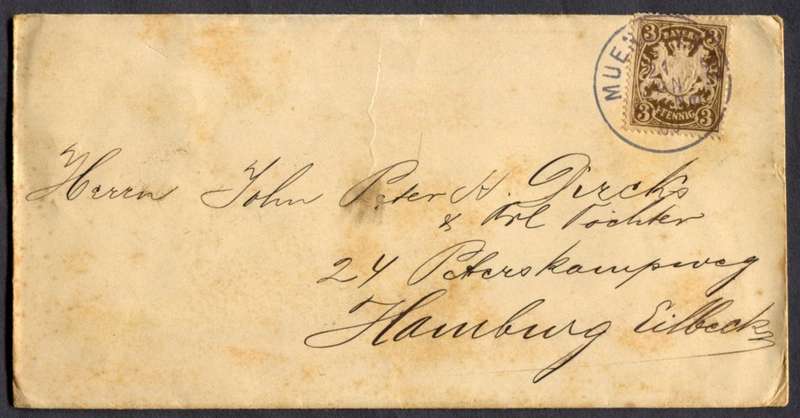 MUEN
3 BAYERN 3
3 PFENNIG 3
Herrn John Peter H. Dircks
& Frl Töchter
24 Peterskampweg
Hamburg Eilbeck